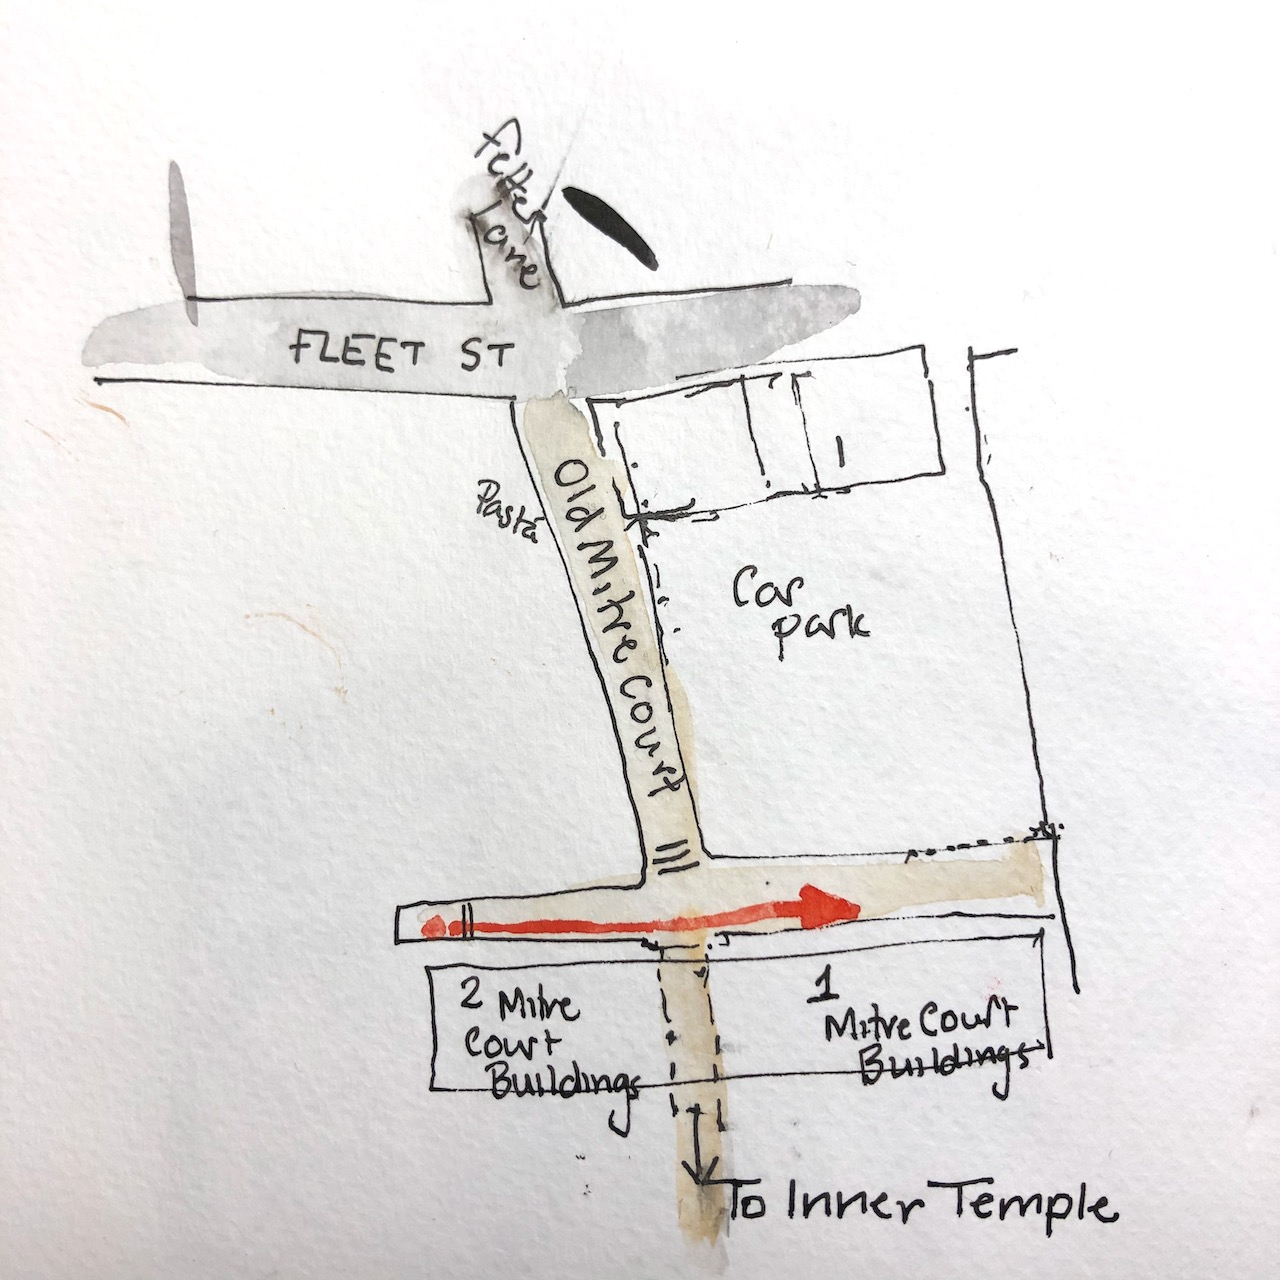 Fetter
Lane
FLEET ST
Pasta
Old Mitre Court
Car
park
2 Mitre
Court
Buildings
1
Mitre Court
Buildings
To Inner Temple